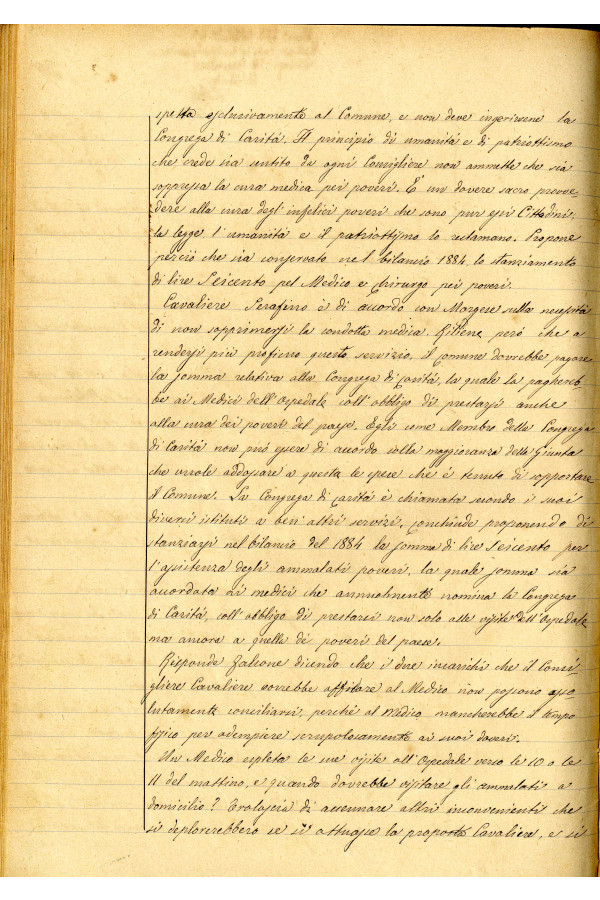 spetta esclusivamente al Comune, e non deve ingerirsene la
Congrega di Carità. Il principio di umanità e di patriottismo
che crede sia sentito da ogni Consigliere non ammette che sia
soppressa la cura medica pei poveri. È un dovere sacro provve-
dere alla cura degli infelici poveri che sono pur essi Cittadini;
la legge l'umanità e il patriottismo lo reclamano. Propone
perciò che sia conservato nel bilancio 1884 lo stanziamento
di lire Seicento pel Medico e Chirurgo pei poveri.
Cavaliere Serafino è di accordo con Morgese sulla necessità
di non sopprimersi la condotta medica. Ritiene però che a
rendersi più proficuo questo servizio, il Comune dovrebbe pagare
la somma relativa alla Congrega di Carità, la quale la paghereb-
be ai Medici dell'Ospedale coll'obbligo di prestarsi anche
alla cura dei poveri del paese. Egli come Membro della Congrega
di Carità non può essere di accordo colla maggioranza della Giunta
che vuole addossare a questa le spese che è tenuto di sopportare
il Comune. La Congrega di Carità è chiamata secondo i suoi
diversi istituti a ben altri servizi. Conchiude proponendo di
stanziarsi nel bilancio del 1884 la somma di lire Seicento per
l'assistenza degli ammalati poveri, la quale somma sia
accordata ai medici che annualmente nomina la Congrega
di Carità, coll'obbligo di prestarsi non solo alle visite dell'Ospedale
ma ancora a quella de' poveri del paese.
Risponde Falcone dicendo che i due incarichi che il Consi-
gliere Cavaliere vorrebbe affidare al Medico non possono asso
lutamente conciliarsi, perché al Medico mancherebbe il tempo
fisico per adempiere scrupolosamente ai suoi doveri.
Un Medico espleta le sue visite all'Ospedale verso le 10 o le
11 del mattino, e quando dovrebbe visitare gli ammalati a
domicilio? Tralascia di accennare altri inconvenienti che
si deplorerebbero se si attuasse la proposta Cavaliere, e si